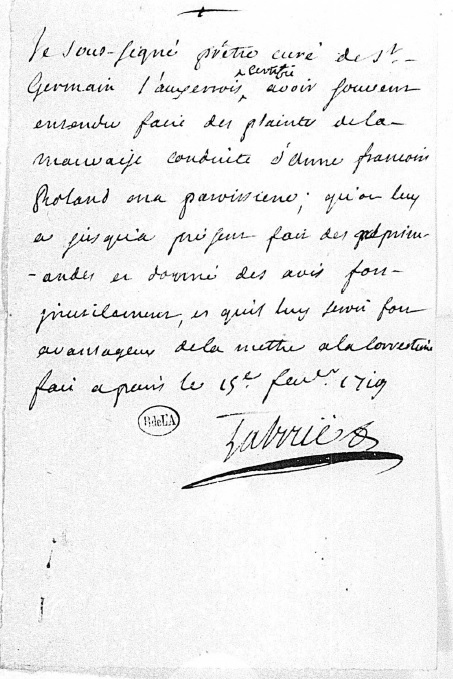 Je sous-signé prêtre curé de St-
Germain l'auxerrois certifie avoir souvent
entendu faire des plainte dela-
mauvaise conduite d'Anne francois
Roland ma parroissiene; qu'on luy
a jusqu'a présent fait des réprim-
-andes et donné des avis fort
inutilement, et qu'il luy seroit fort
avantageux dela mettre ala correction
fait a paris le 15e fevr. 1719
BdeLA
Labrüe